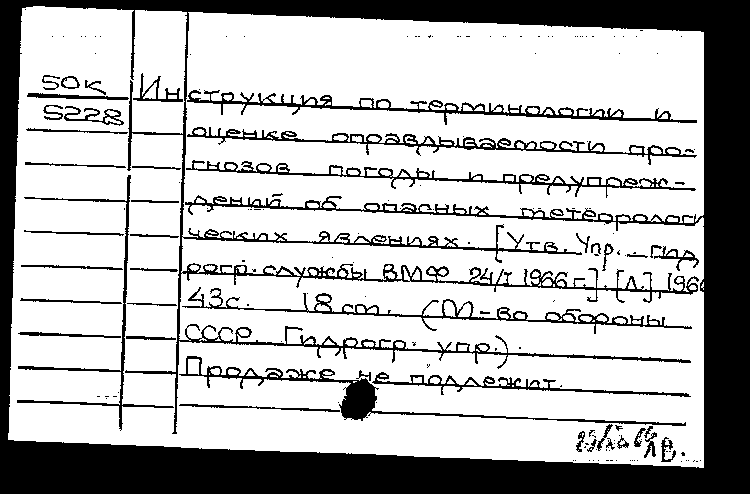 50К Инструкция по терминологии и
5228 оценке оправдываемости про-
гнозов погоды и предупреж-
дений об опасных метеорологи
ческих явлениях. [Утв. Упр. гид
рогр. службы ВМФ 24/I 1966 г.]. [Л.], 196
43с. 18 см. (М-во обороны
СССР. Гидрогр. упр.).
Продаже не подлежит.